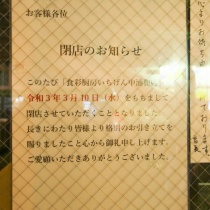 お客様各位
閉店のお知らせ
このたび「食彩厨房いちげん
令和3年3月10日(水)をもちまして
閉店させていただくこととなりました
長きにわたり皆様より格別のお引き立てを
賜りましたこと心から御礼申し上げます。
ご愛顧いただきありがとうございました。